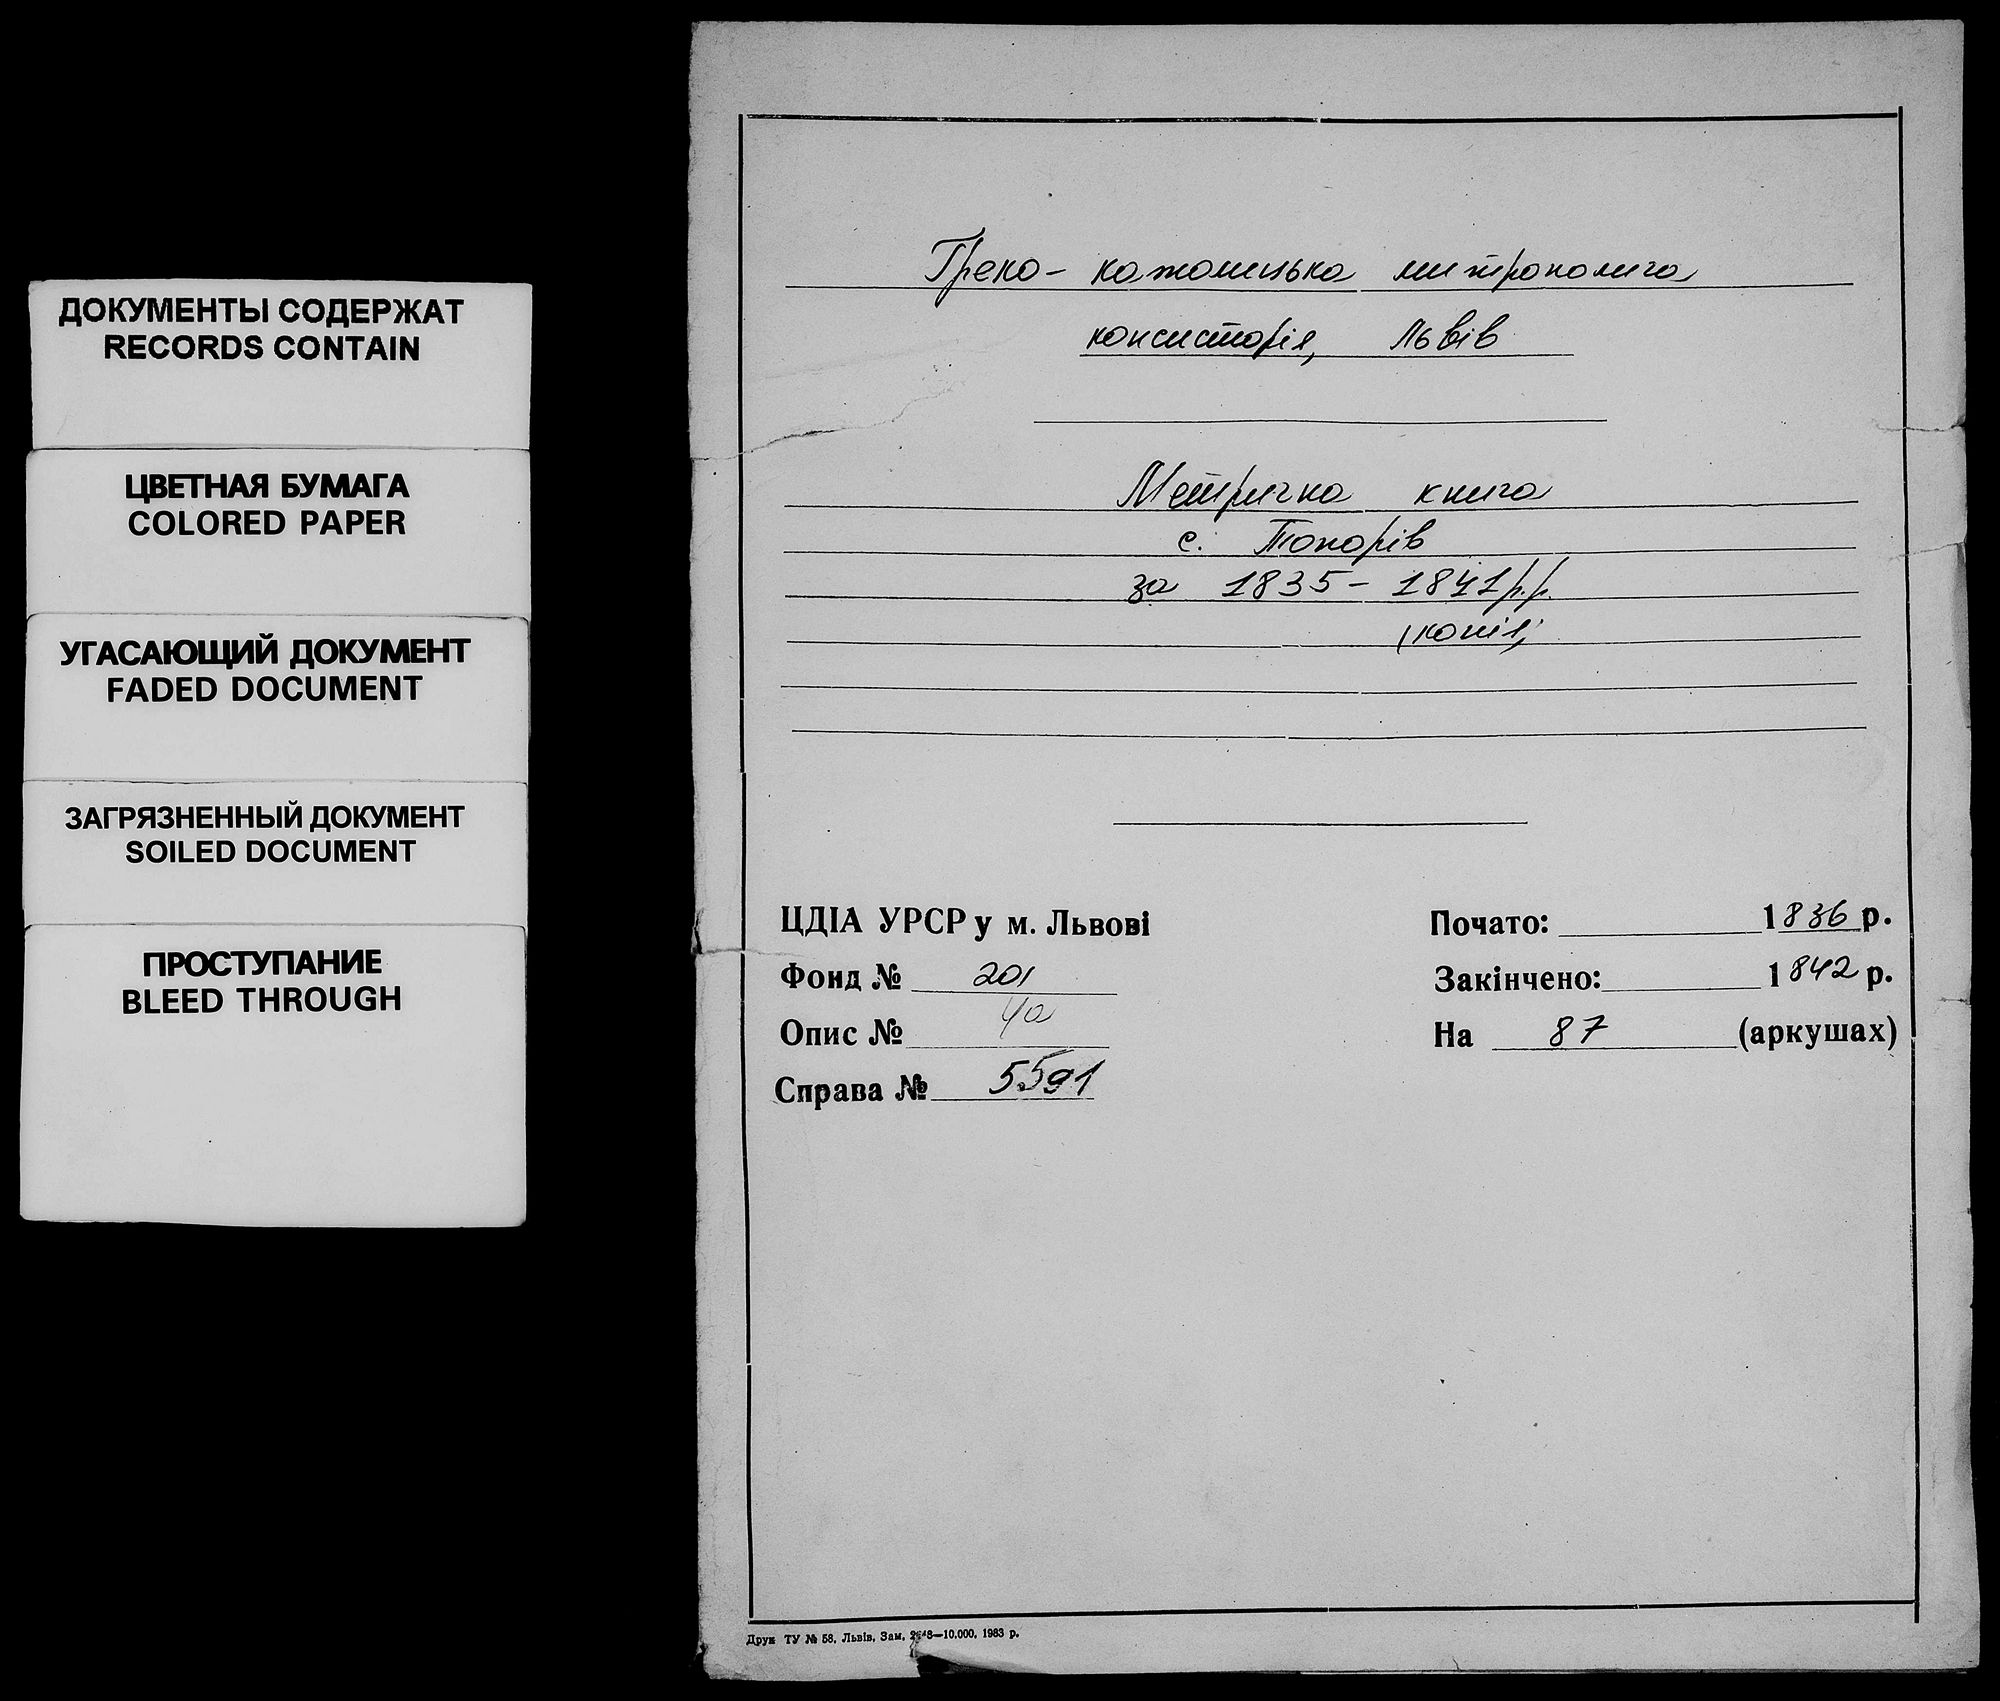 ДОКУМЕНТЫ СОДЕРЖАТ
RECORDS CONTAIN
ЦВЕТНАЯ БУМАГА
COLORED PAPER
УГАСАЮЩИЙ ДОКУМЕНТ
FADED DOCUMENT
ЗАГРЯЗНЕННЫЙ ДОКУМЕНТ
SOILED DOCUMENT
ПРОСТУПАНИЕ
BLEED THROUGH
Греко-католицька митрополича
консисторія, Львів
Метрична книга
с. Топорів
за 1835-1841 р.р.
(копія)
ЦДІА УРСР у м. Львові
Фонд № 201
Опис № 4а
Справа № 5591
Почато: 1836 р.
Закінчено: 1842 р.
На 87 (аркушах)
Друк ТУ № 58. Львів. Зам. —10.000. 1983 р.